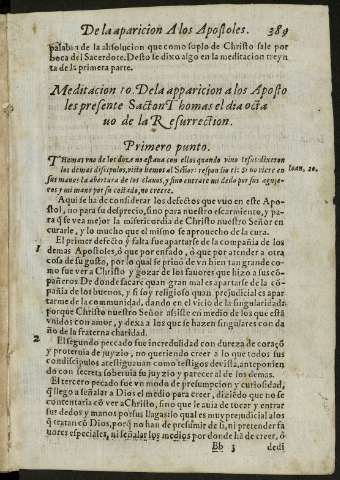 De la aparicion A los Apostoles. 389
palabra de la absolucion que como soplo de Christo sale por
boca del Sacerdote. Desto se dixo algo en la meditacion treyn
ta de la primera parte.
Meditacion 10. De la apparicion a los Aposto
les presente Sācto n Thomas el dia octa
uo de la Resurrection.
Primero punto.
THomas vno de los doze no estaua con ellos quando vino Iesus: dixeron
los demas discipulos, visto hemos al Señor: respondio: si no viere en
Ioan. 20.
sus manos la abertura de los clauos, y sino entrare mi dedo por sus aguje-
ros y mi mano por su costado, no creere.
Aqui se ha de considerar los defectos que vuo en este Apo-
stol, no para su desprecio, sino para nuestro escarmiento, y pa-
ra q̃ se vea mejor la misericordia de Christo nuestro Señor en
curarle, y lo mucho que el mismo se aprouecho de la cura.
1 El primer defecto y falta fue apartarse de la compañia de los
demas Apostoles, ò que por enfado, ò que por atender a otra
cosa de su gusto, por lo qual se priuò de vn bien tan grande co-
mo fue ver a Christo y gozar de los fauores que hizo a sus cō-
pañeros. De donde sacare quan gran mal es apartarse de la cō-
pañia de los buenos, y si soy religioso quan prejudicial es apar-
tarme de la comunidad, dando en el vicio de la singularidad:
porque Christo nuestro Señor assiste en medio de los que està
vnidos con amor, y dexa a los que se hazen singulares con da-
ño de la fraterna charidad.
2 El segundo peccado fue incredulidad con dureza de coraçō
y proteruia de juyzio, no queriendo creer a lo que todos sus
condiscipulos atestiguauan como testigos de vista, anteponien
do con secreta soberuia su juyzio y parecer al de los demas.
El tercero pecado fue vn modo de presumpcion y curiosidad,
q̃ llego a señalar a Dios el medio para creer, diziēdo que no se
contentaria cō ver a Christo, sino que le auia de tocar y entrar
sus dedos y manos por sus llagas: lo qual es muy prejudicial a los
q̃ tratan cō Dios, porq̃ no han de presumir de si, ni pretender fa
uores especiales, ni señalar los medios por donde hā de creer, ò
Bb 3 dedi